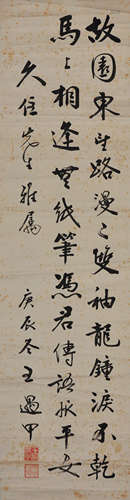 故園東望路漫〻雙袖龍鐘淚不乾
馬上相逢無紙筆馮君傳語報平安
久住先生雅屬
庚辰冬王遇甲